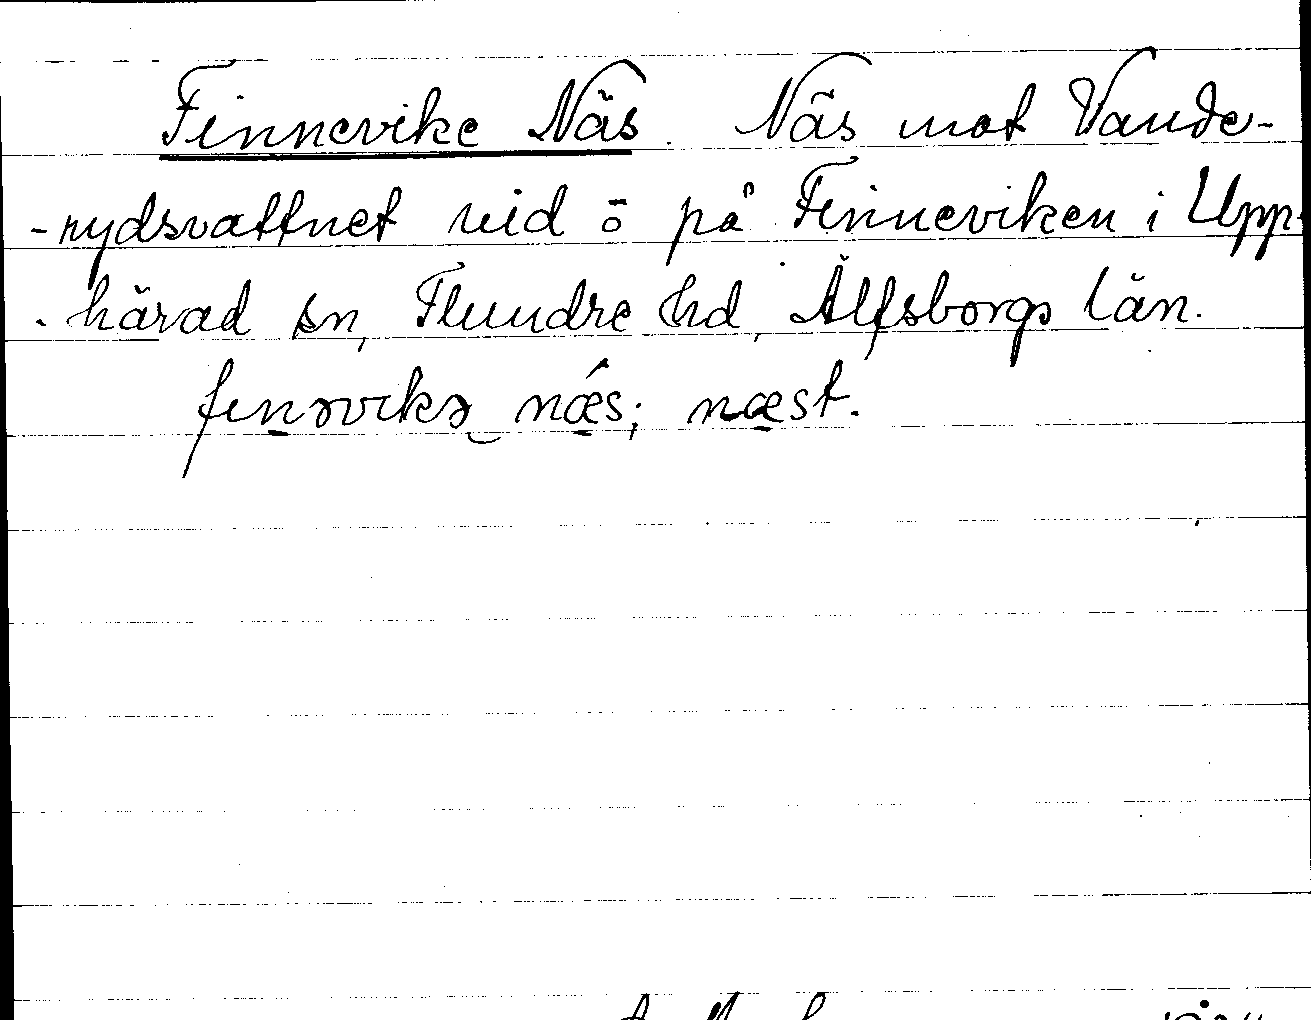 Finnevike Näs. Näs mot Vande-
-rydsvattnet vid ö på Finneviken i Upp-
-härad sn, Flundre hd, Älfsborgs län.
finəvikə næ̀s; næst.